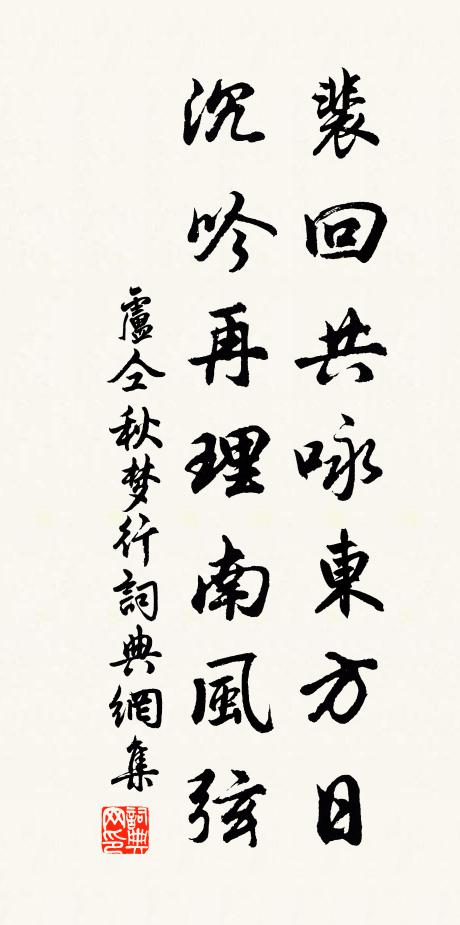 裴回共咏東方日
沉吟再理南風弦
盧仝秋梦行詞典網集
詞典网印